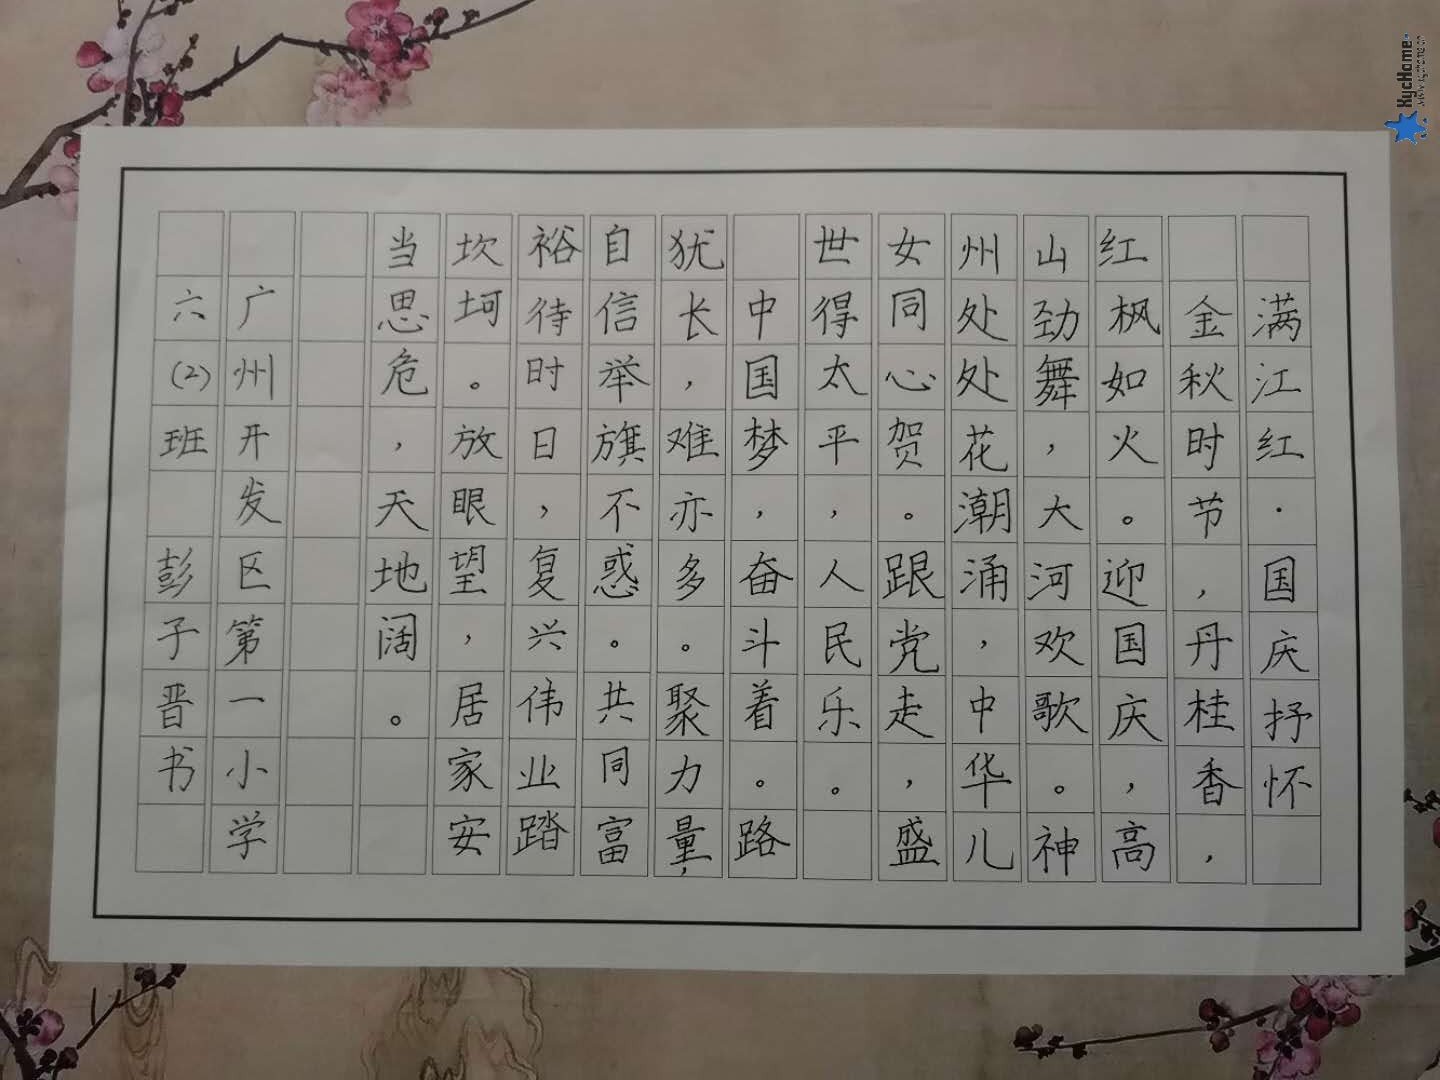 满江红·国庆抒怀
金秋时节,丹桂香,
红枫如火。迎国庆,高
山劲舞,大河欢歌。神
州处处花潮涌,中华儿
女同心贺。跟党走,盛
世得太平,人民乐。
中国梦,奋斗着。路
犹长,难亦多。聚力量,
自信举旗不惑。共同富
裕待时日,复兴伟业踏
坎坷。放眼望,居家安
当思危,天地阔。
广州开发区第一小学
六(2)班 彭子晋书
KycHome